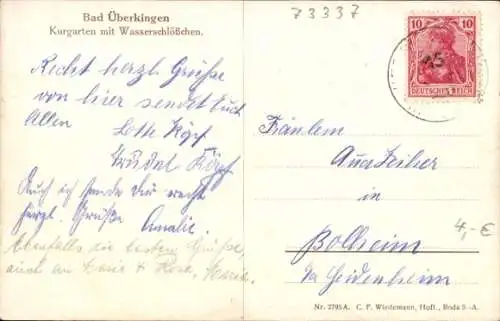 Bad Überkingen
Kurgarten mit Wasserschlößchen.
73337
10 10
DEUTSCHES REICH
15
Recht herzl. Grüße
von hier sendet Euch
Allen Lotte Köpf
Trudel Köpf
Auch ich sende Dir recht
herzl. Grüße Amalie.
Ebenfalls die besten Grüße,
auch an Marie & Rosa,
Fräulein
Anna
in
Bolheim
b/a Heidenheim
4,- €
Nr. 2795A. C. F. Wiedemann, Hoft., Roda S.-A.